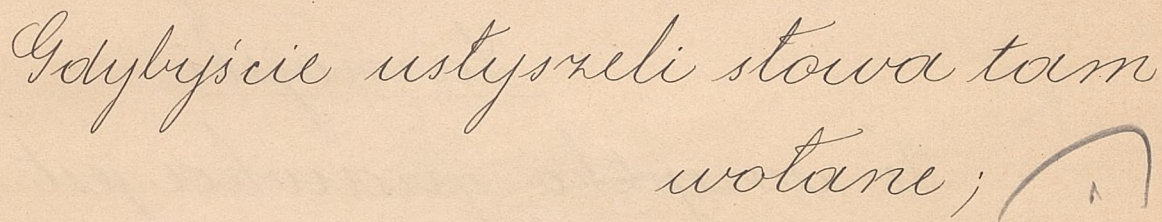 Gdybyście usłyszeli słowa tam
wołane;